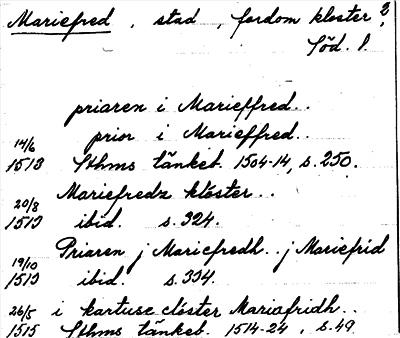 Mariefred, stad, fordom kloster, 2
Söd. l.
priaren i Marieffred..
prior i Marieffred..
14/6
1513 Sthms tänkeb. 1504-14, s. 250.
Mariefredz klöster..
20/8
1513 ibid. s. 324.
Priaren j Mariefredh.. j Mariefrid
19/10
1513 ibid. s. 334.
26/5 i kartuse clöster Mariafridh..
1515 Sthms tänkeb. 1514-24, s. 49.